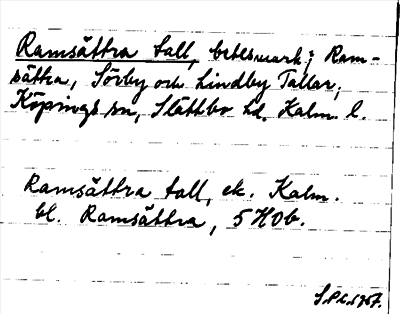 Ramsättra tall, betesmark; Ram-
sättra, Sörby och Lindby Tallar;
Köpings sn, Slättbo hd. Kalm. l.
Ramsättra tall, ek. Kalm.
bl. Ramsättra, 5 H 0 b.